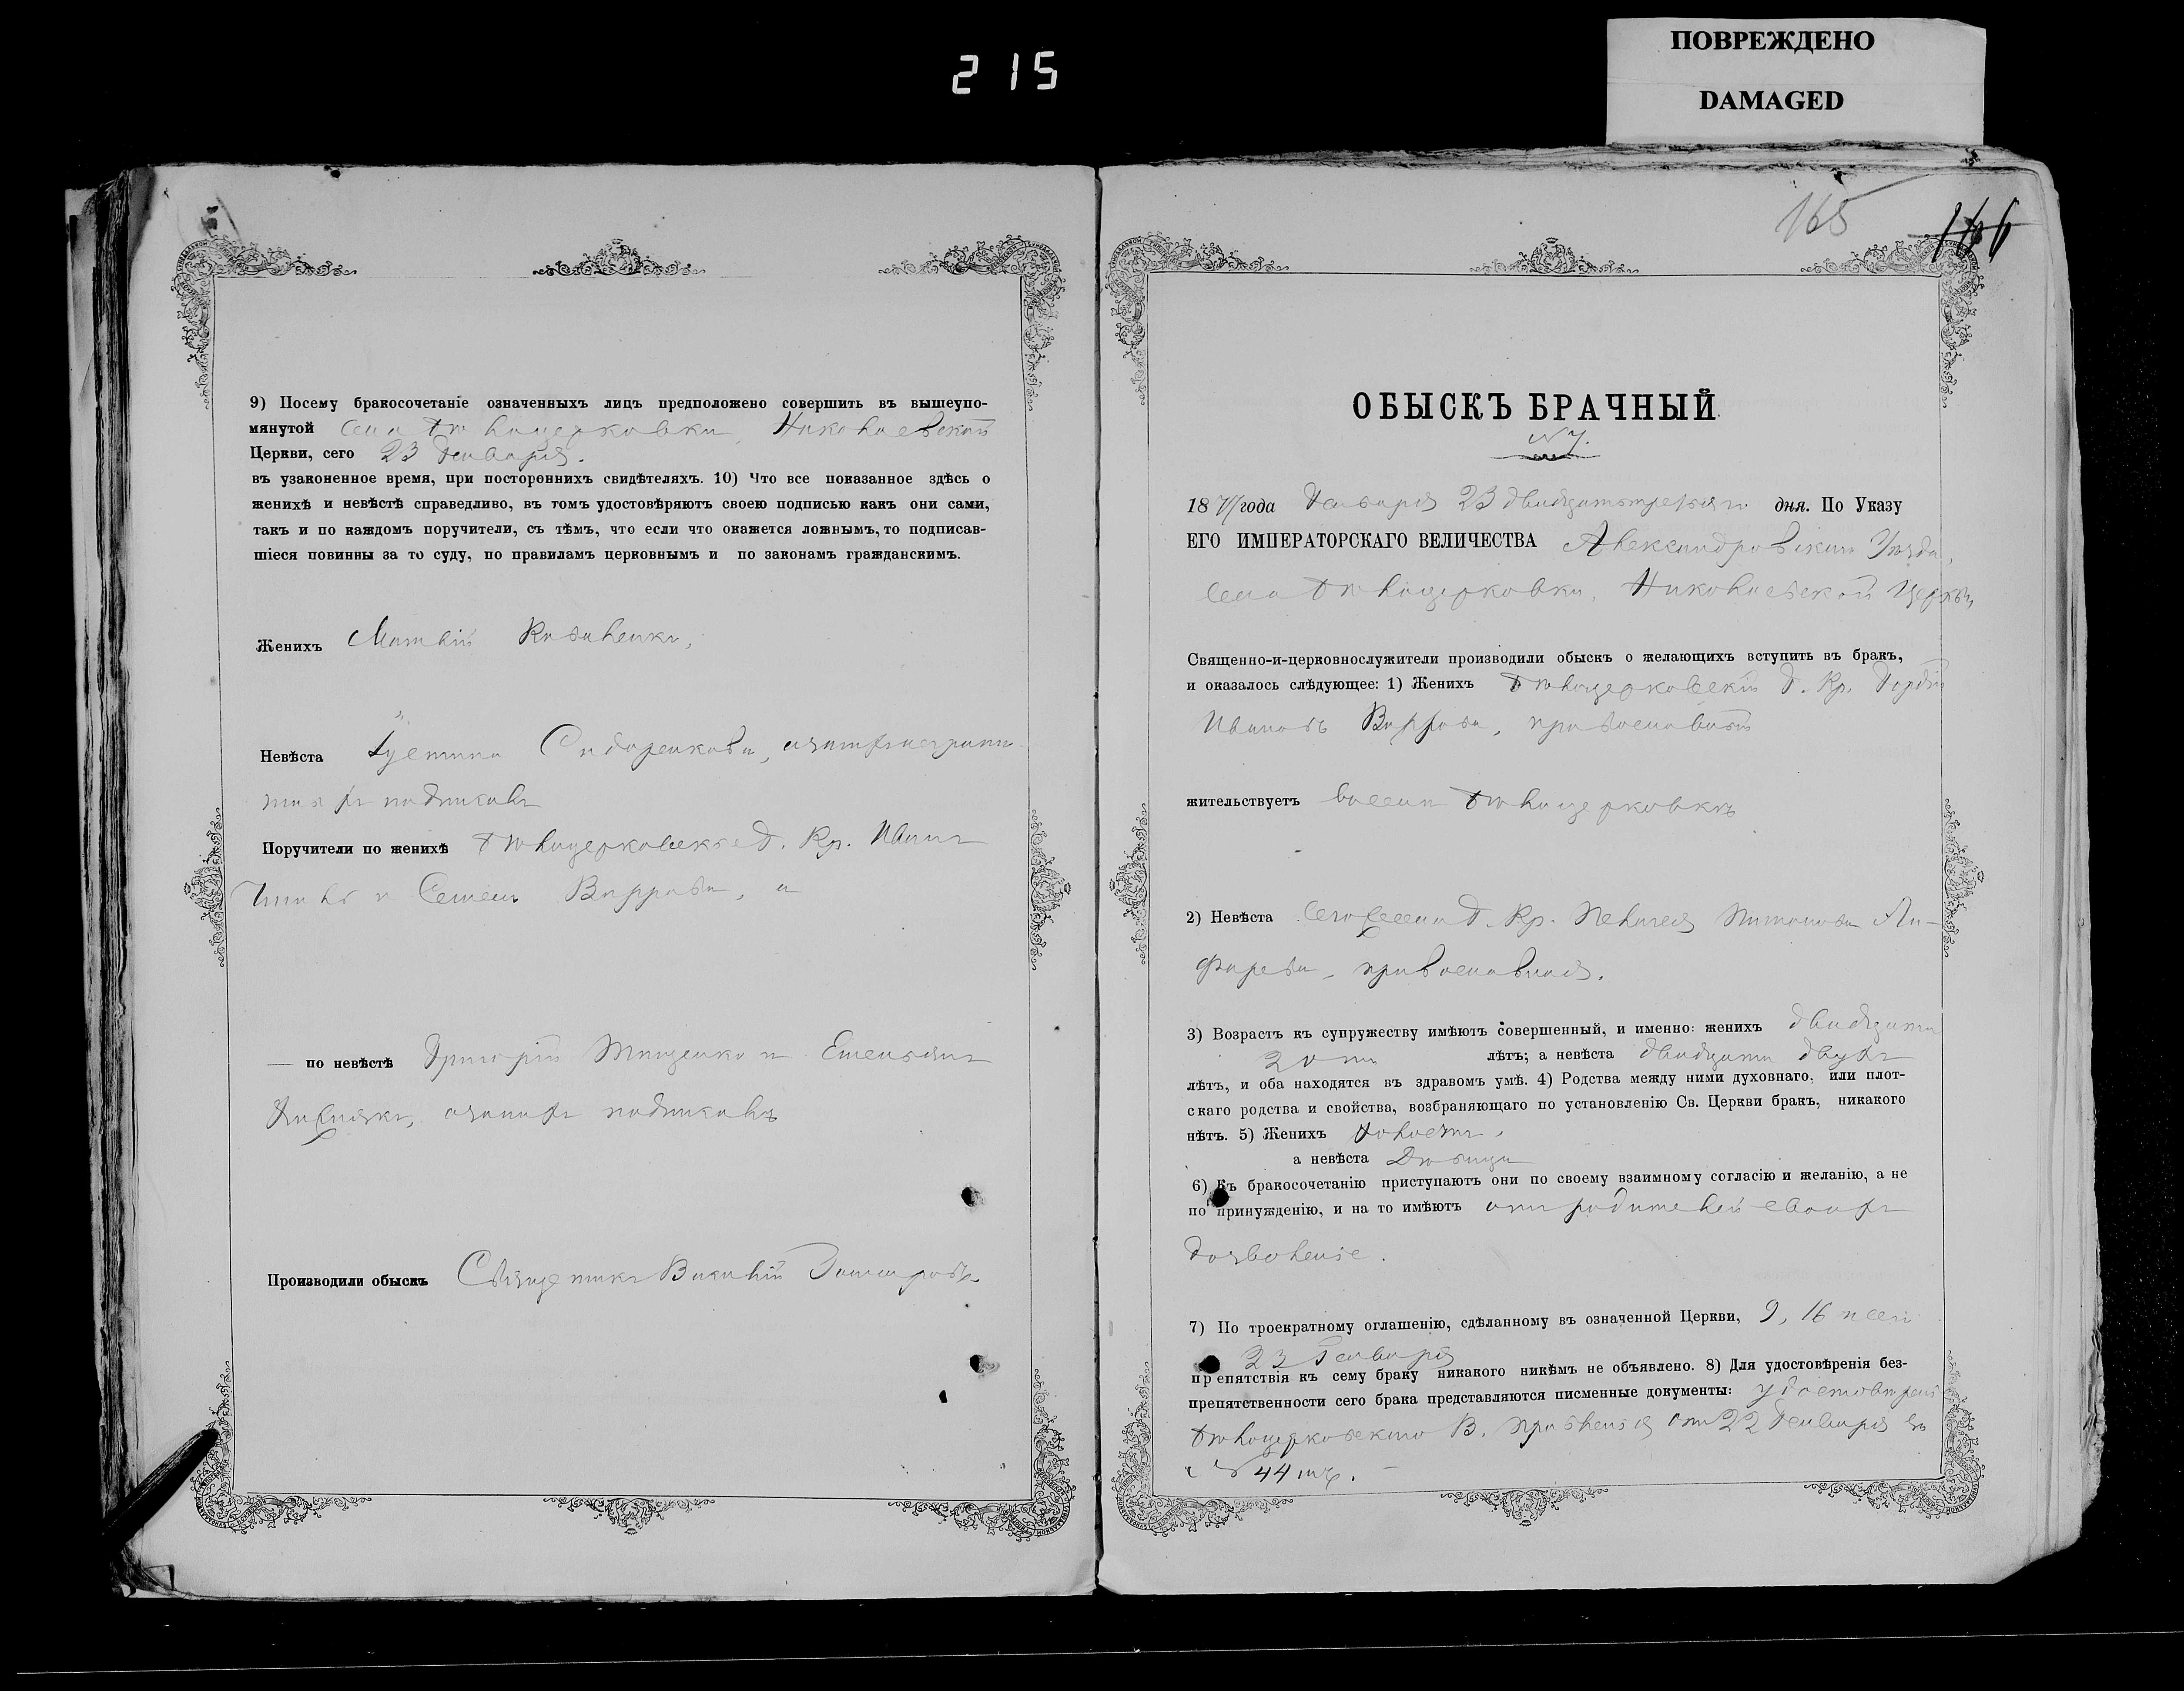 215
ПОВРЕЖДЕНО
DAMAGED
9) Посему бракосочетаніе означенныхъ лицъ предположено совершить въ вышеупо-
мянутой села Бѣлоцерковки, Николаевской
Церкви, сего 23 Генваря.
въ узаконенное время, при постороннихъ свидѣтеляхъ. 10) Что все показанное здѣсь о
женихѣ и невѣстѣ справедливо, въ томъ удостовѣряютъ своею подписью какъ они сами,
такъ и по каждомъ поручители, съ тѣмъ, что если что окажется ложнымъ, то подписав-
шіеся повинны за то суду, по правиламъ церковнымъ и по законамъ гражданскимъ.
Женихъ
Невѣста Сидоренкова,
Поручители по женихѣ Бѣлоцерковскіе Г. Кр. Иванъ
и Семенъ
— по невѣстѣ Григорій Тищенко и Емельянъ
Производили обыскъ Священникъ
165
166
ОБЫСКЪ БРАЧНЫЙ
№ 7.
187 года Генваря 23 двадцатьтретьяго дня. По Указу
ЕГО ИМПЕРАТОРСКАГО ВЕЛИЧЕСТВА Александровскаго Уѣзда,
села Бѣлоцерковки, Николаевской Церкви,
Священно-и-церковнослужители производили обыскъ о желающихъ вступить въ бракъ,
и оказалось слѣдующее: 1) Женихъ Бѣлоцерковскій Г. Кр. Гордій
Ивановъ православный
жительствуетъ въ селѣ Бѣлоцерковкѣ
2) Невѣста сего села Г. Кр. Пелагея Антонова
православная.
3) Возрастъ къ супружеству имѣютъ совершенный, и именно: женихъ двадцати
20ти лѣтъ; а невѣста двадцати двухъ
лѣтъ, и оба находятся въ здравомъ умѣ. 4) Родства между ними духовнаго, или плот-
скаго родства и свойства, возбраняющаго по установленію Св. Церкви бракъ, никакого
нѣтъ. 5) Женихъ холостъ,
а невѣста Дѣвица
6) Къ бракосочетанію приступаютъ они по своему взаимному согласію и желанію, а не
по принужденію, и на то имѣютъ отъ родителей своихъ
дозволеніе.
7) По троекратному оглашенію, сдѣланному въ означенной Церкви, 9, 16 и сего
23 Генваря
препятствія къ сему браку никакого никѣмъ не объявлено. 8) Для удостовѣренія без-
препятственности сего брака представляются писменные документы:
Бѣлоцерковскаго В. Правленія отъ 22 Генваря за
№ 44мъ.